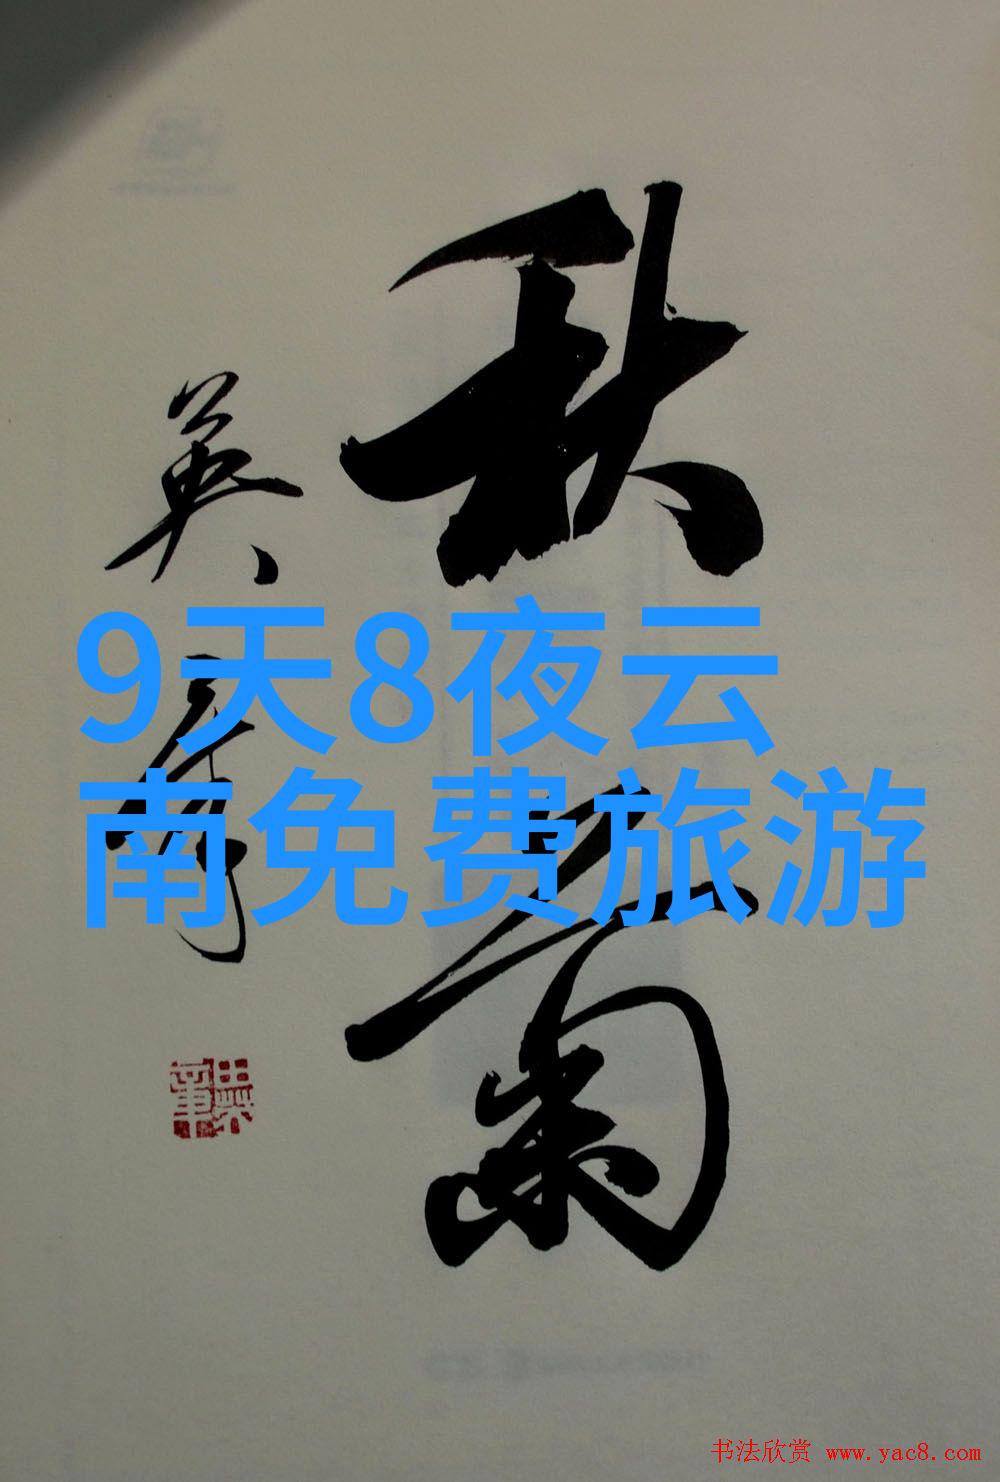 秋菊
英章
9天8夜云
南免费旅游
书法欣赏 www.yac8.com